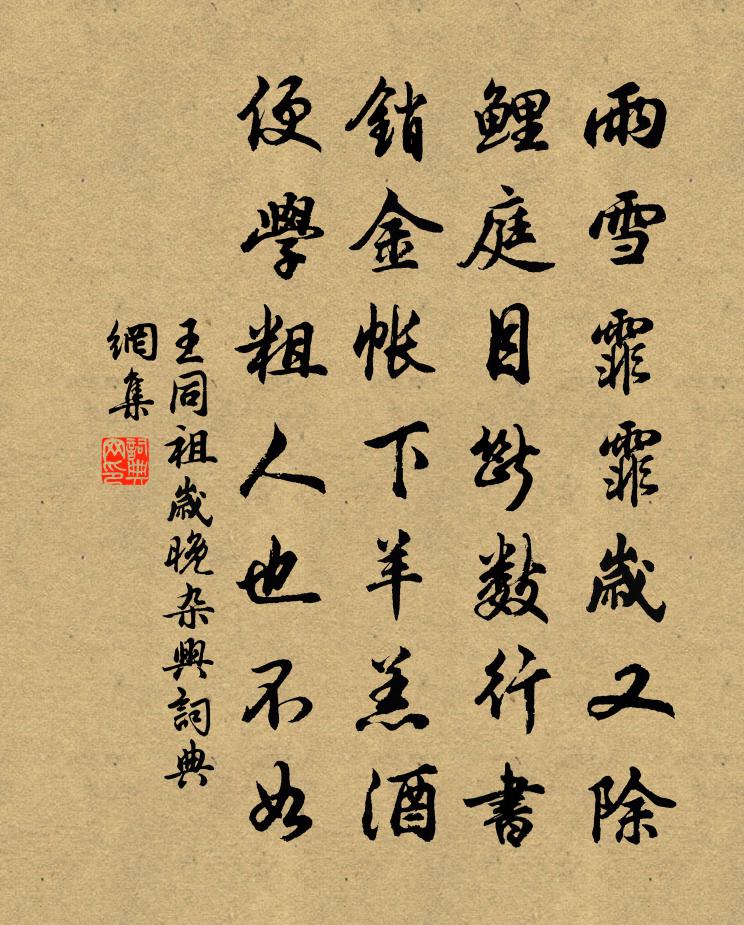 雨雪霏霏歲又除
鯉庭目斷數行書
銷金帳下羊羔酒
便學粗人也不如
王同祖歲晚杂興詞典
網集
詞典
网印